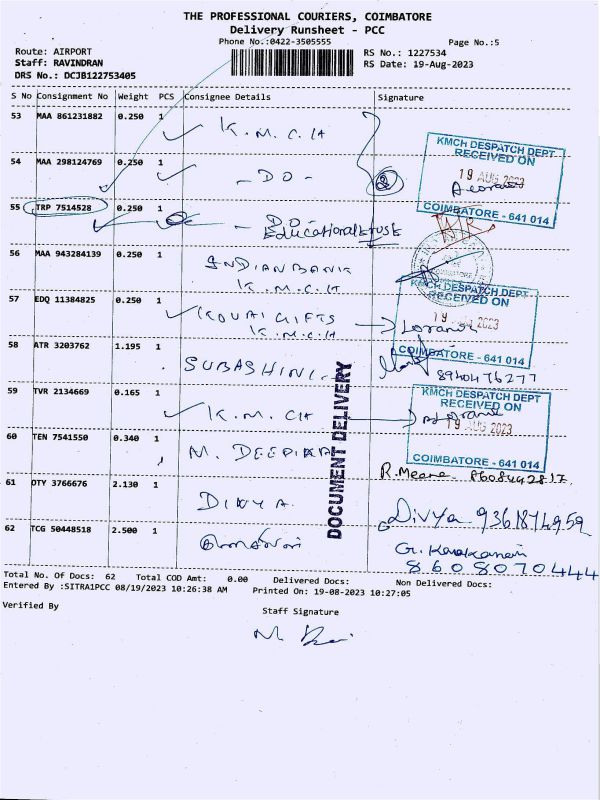 THE PROFESSIONAL COURIERS, COIMBATORE
Delivery Runsheet - PCC
Phone No.:0422-3505555
Page No.:5
Route: AIRPORT
RS No.: 1227534
Staff: RAVINDRAN
RS Date: 19-Aug-2023
DRS No.: DCJB122753405
S No Consignment No Weight PCS Consignee Details Signature
53 MAA 861231882 0.250 1 K.M.C.H
54 MAA 298124769 0.250 1 - DO -
KMCH DESPATCH DEPT
RECEIVED ON
19 AUG 2023
COIMBATORE - 641 014
55 TRP 7514528 0.250 1 - DO -
Educational Trust
56 MAA 943284139 0.250 1 INDIAN BANK
K.M.C.H
57 EDQ 11384825 0.250 1 KOVAI GIFTS
K.M.C.H
KMCH DESPATCH DEPT
RECEIVED ON
19 AUG 2023
COIMBATORE - 641 014
58 ATR 3203762 1.195 1 SUBASHINI.
8940476277
59 TVR 2134669 0.165 1 K.M.CH
KMCH DESPATCH DEPT
RECEIVED ON
19 AUG 2023
COIMBATORE - 641 014
60 TEN 7541550 0.340 1 M. DEEPIKA
R. Meena
61 OTY 3766676 2.130 1 DIVYA
Divya 9361874959
62 TCG 50448518 2.500 1
8608070444
DOCUMENT DELIVERY
Total No. Of Docs: 62 Total COD Amt: 0.00 Delivered Docs: Non Delivered Docs:
Entered By :SITRA1PCC 08/19/2023 10:26:38 AM Printed On: 19-08-2023 10:27:05
Verified By
Staff Signature